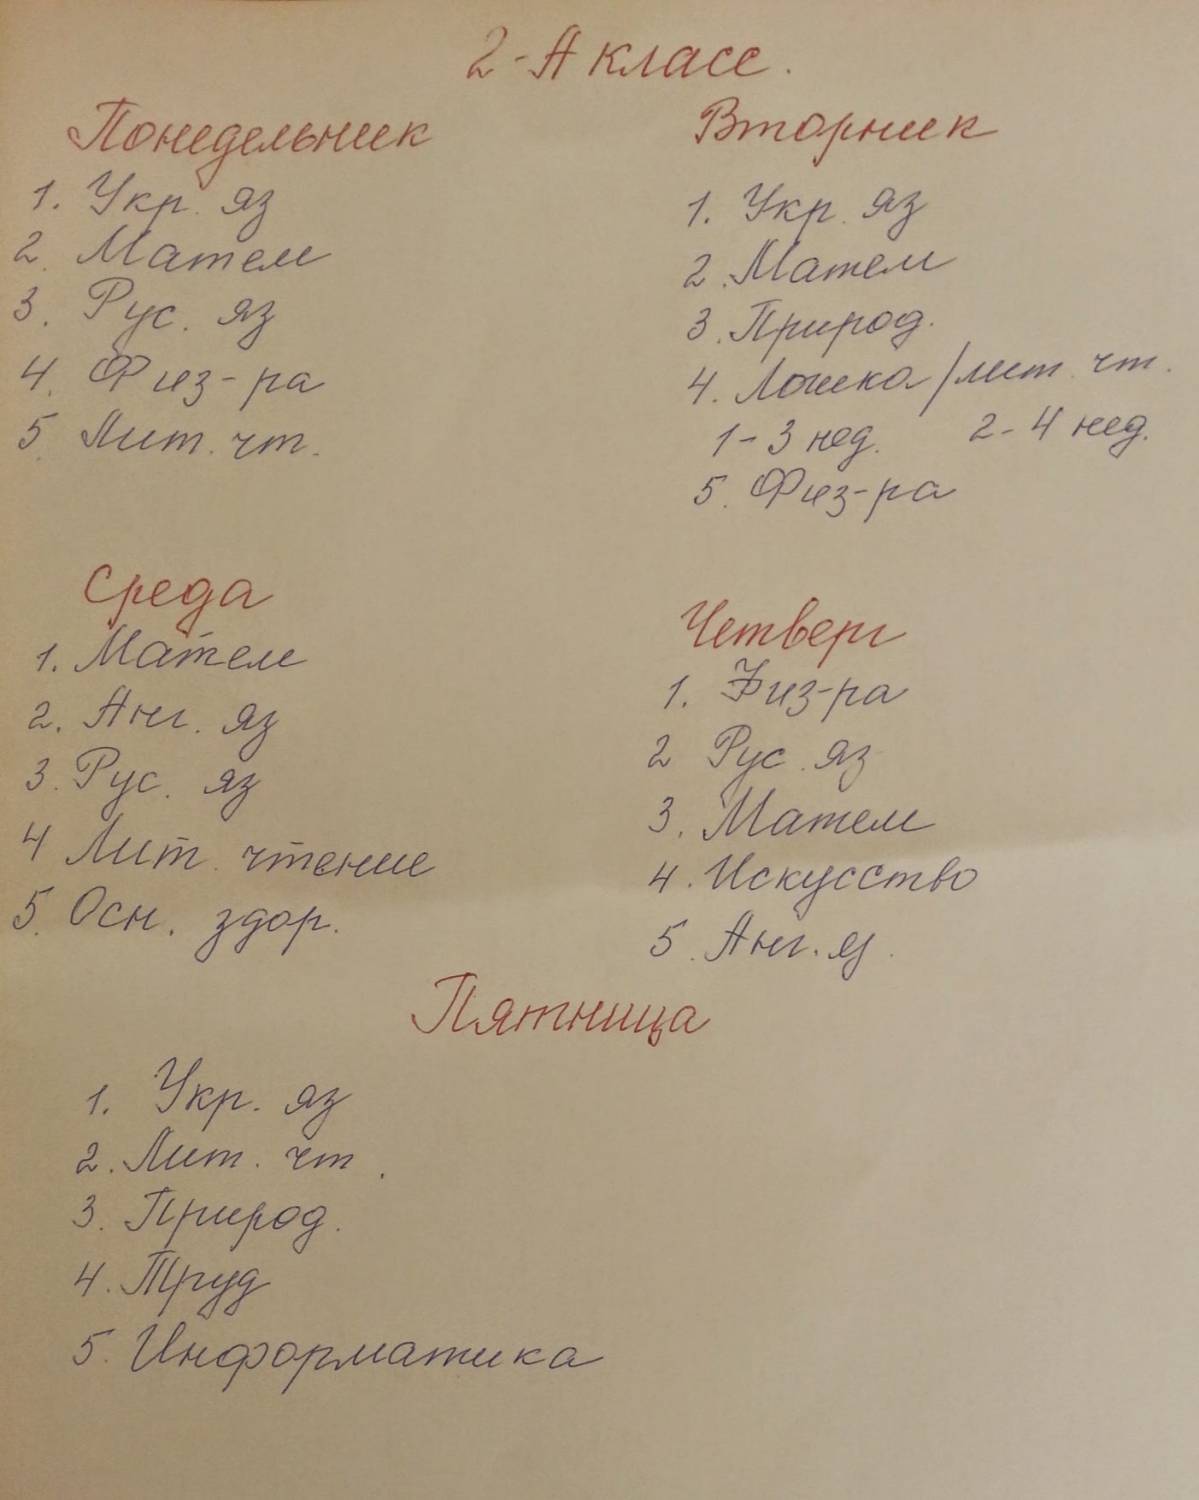 2-А класс.
Понедельник
1. Укр. яз
2. Матем
3. Рус. яз
4. Физ-ра
5. Лит. чт.
Вторник
1. Укр. яз
2. Матем
3. Природ.
4. Логика/лит. чт.
1-3 нед. 2-4 нед.
5. Физ-ра
Среда
1. Матем
2. Анг. яз
3. Рус. яз
4 Лит. чтение
5. Осн. здор.
Четверг
1. Физ-ра
2 Рус. яз
3. Матем
4. Искусство
5. Анг. яз.
Пятница
1. Укр. яз
2. Лит. чт.
3. Природ.
4. Труд
5. Информатика